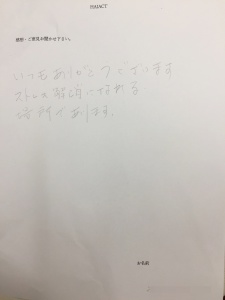 HAIACT
感想・ご意見お聞かせ下さい。
いつもありがとうございます
ストレス解消に切れる
場所があります。
お名前